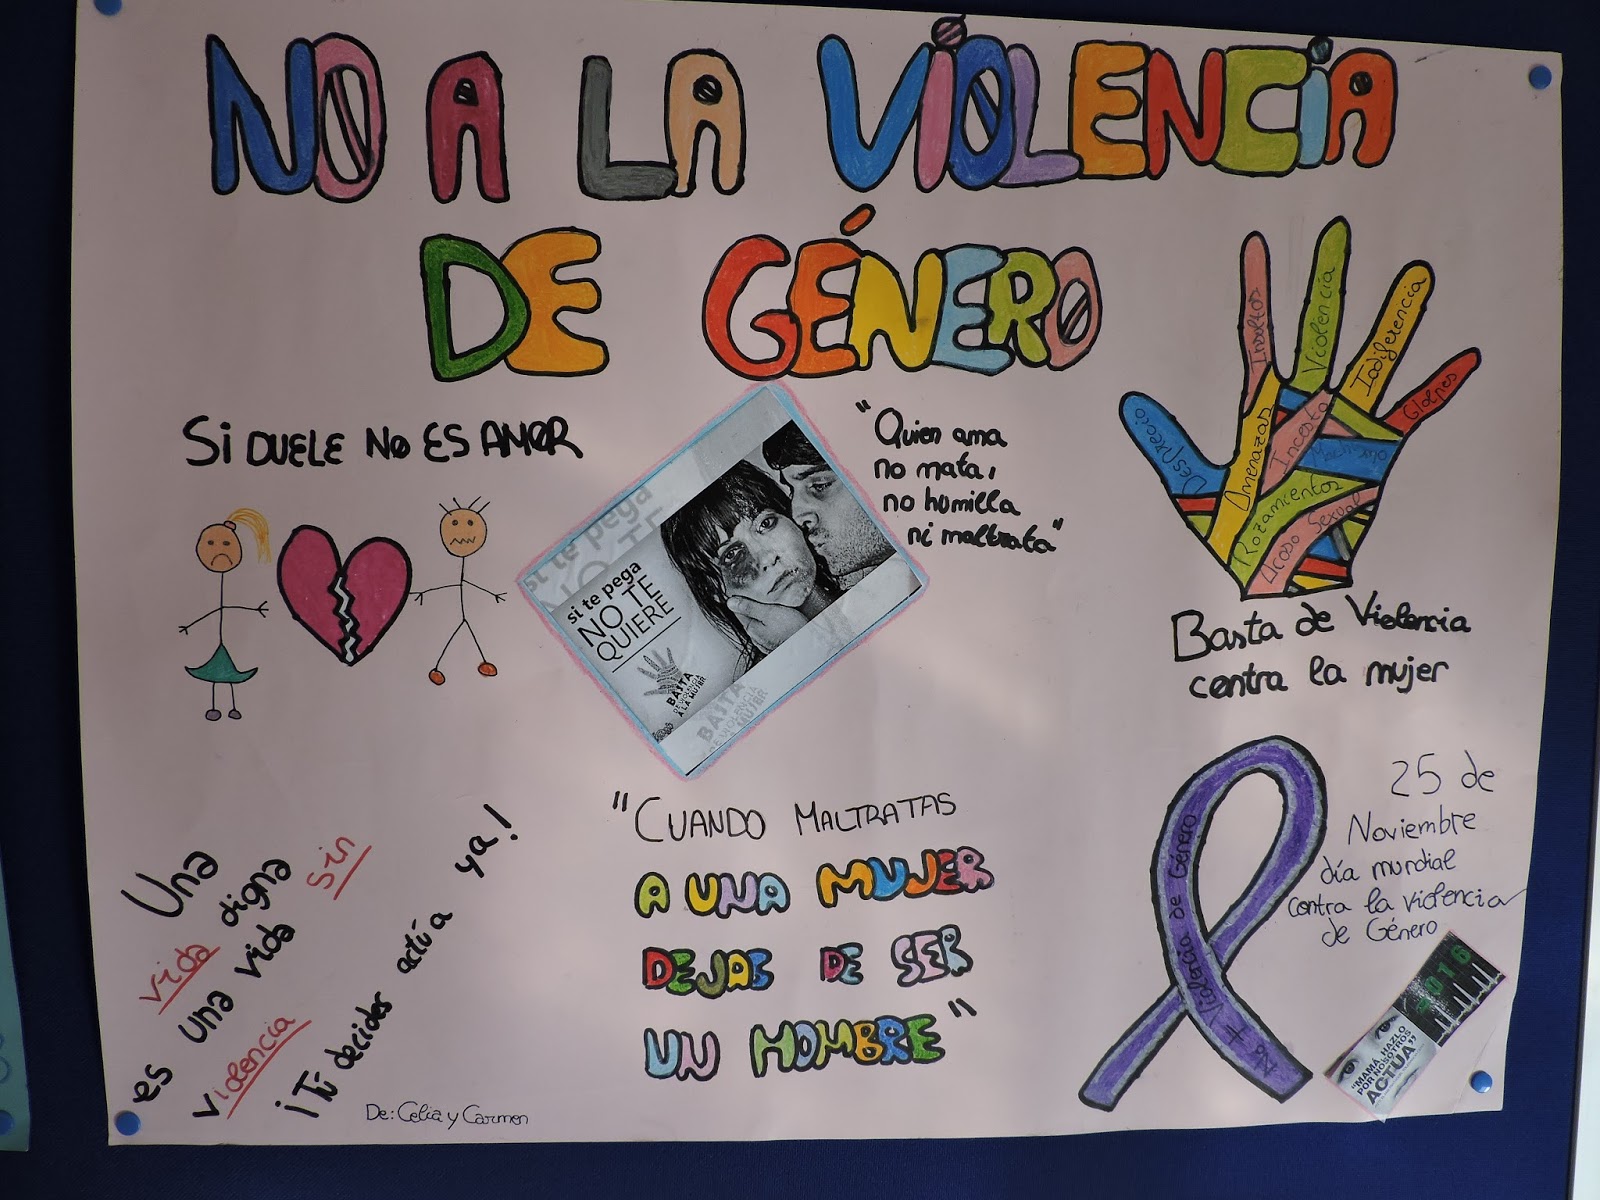 NO A LA VIOLENCIA
DE GÉNERO
SI DUELE NO ES AMOR
si te pega
NO TE
QUIERE
si te pega
NO TE
QUIERE
BASTA
DE VIOLENCIA
A LA MUJER
BASTA
DE VIOLENCIA
MUJER
"Quien ama
no mata,
no humilla
ni maltrata"
Desprecio
Insultos
Violencia
Indiferencia
Golpes
Amenazas
Incesto
Rozamientos
Acoso Sexual
Basta de Violencia
contra la mujer
"CUANDO MALTRATAS
A UNA MUJER
DEJAS DE SER
UN HOMBRE"
Una
vida digna
es una vida sin
violencia
¡Tú decides actúa ya!
De: Celia y Carmen
No + Violencia de Género
25 de
Noviembre
día mundial
contra la violencia
de Género
2016
"MAMÁ, HAZLO
POR NOSOTROS
ACTÚA"